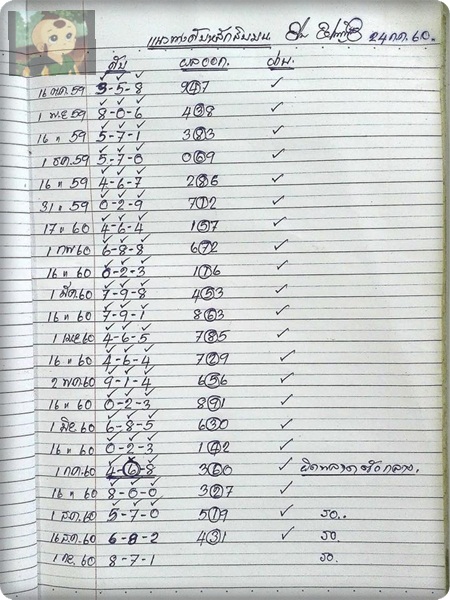 แนวทางดับหลักสิบบน 24 ก.ค. 60.
ดับ ผลออก. ผ่าน.
16 ต.ค. 59 3-5-8 947 ✓
1 พ.ย 59 8-0-6 438 ✓
16 " 59 5-7-1 383 ✓
1 ธ.ค. 59 5-7-0 069 ✓
16 " 59 4-6-7 286 ✓
31 " 59 0-2-9 712 ✓
17 ม 60 4-6-4 157 ✓
1 กพ 60 6-8-8 672 ✓
16 " 60 0-2-3 116 ✓
1 มีค. 60 7-9-8 453 ✓
16 " 60 7-9-1 863 ✓
1 เมย 60 4-6-5 785 ✓
16 " 60 4-6-4 729 ✓
2 พค. 60 9-1-4 656 ✓
16 " 60 0-2-3 891 ✓
1 มิย 60 6-8-5 630 ✓
16 " 60 0-2-3 142 ✓
1 กค. 60 4-6-8 360 ผิดพลาดตัวกลาง.
16 " 60 8-0-0 327 ✓
1 ส.ค. 60 5-7-0 519 ✓ รอ..
16 ส.ค. 60 6-8-2 431 ✓ รอ.
1 กย. 60 8-7-1 รอ.